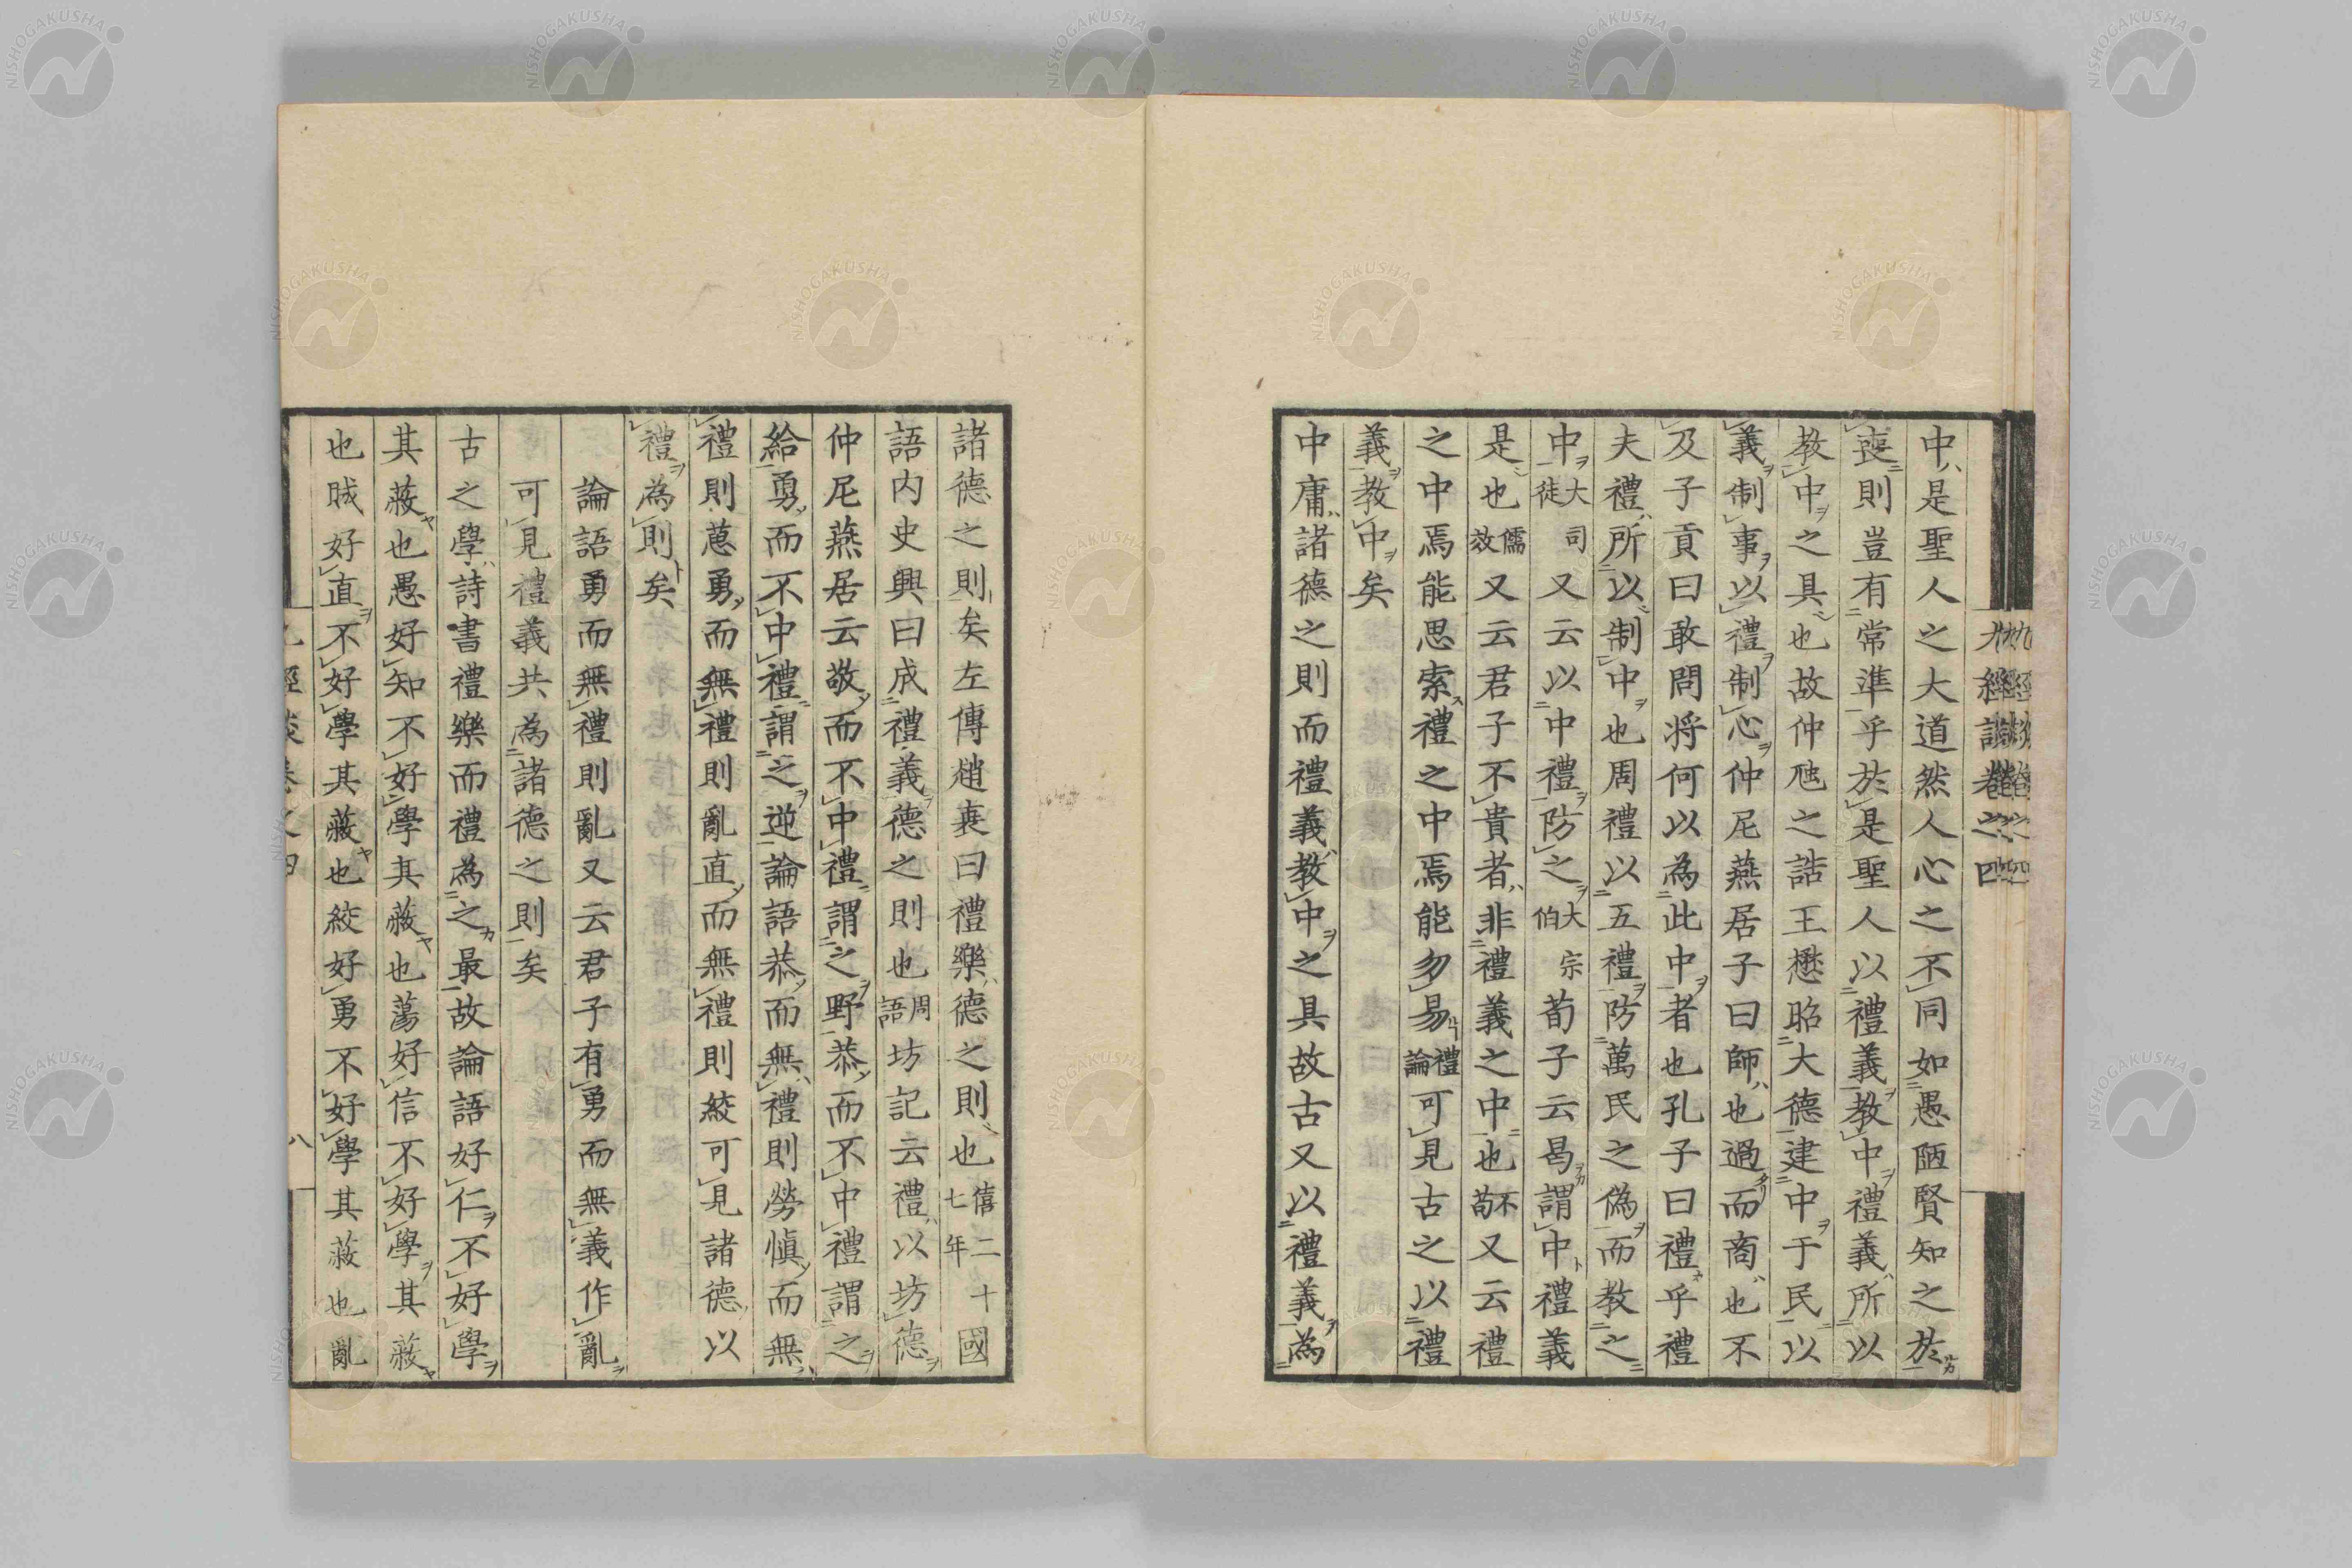 九經談卷之四
中是聖人之大道然人心之不同如愚陋賢知之於
喪則豈有常準乎於是聖人以禮義教中禮義所以
教中之具也故仲虺之誥王懋昭大德建中于民以
義制事以禮制心仲尼燕居子曰師也過而商也不
及子貢曰敢問將何以為此中者也孔子曰禮乎禮
夫禮所以制中也周禮以五禮防萬民之偽而教之
中大司徒又云以中禮防之大宗伯荀子云曷謂中禮義
是也儒效又云君子不貴者非禮義之中也不苟又云禮
之中焉能思索禮之中焉能勿易禮論可見古之以禮
義教中矣
中庸諸德之則而禮義教中之具故古又以禮義為
諸德之則矣左傳趙衰曰禮樂德之則也僖二十七年國
語內史興曰成禮義德之則也周語坊記云禮以坊德
仲尼燕居云敬而不中禮謂之野恭而不中禮謂之
給勇而不中禮謂之逆論語恭而無禮則勞慎而無
禮則葸勇而無禮則亂直而無禮則絞可見諸德以
禮為則矣
論語勇而無禮則亂又云君子有勇而無義作亂
可見禮義共為諸德之則矣
古之學詩書禮樂而禮為之最故論語好仁不好學
其蔽也愚好知不好學其蔽也蕩好信不好學其蔽
也賊好直不好學其蔽也絞好勇不好學其蔽也亂
八
NISHOGAKUSHA